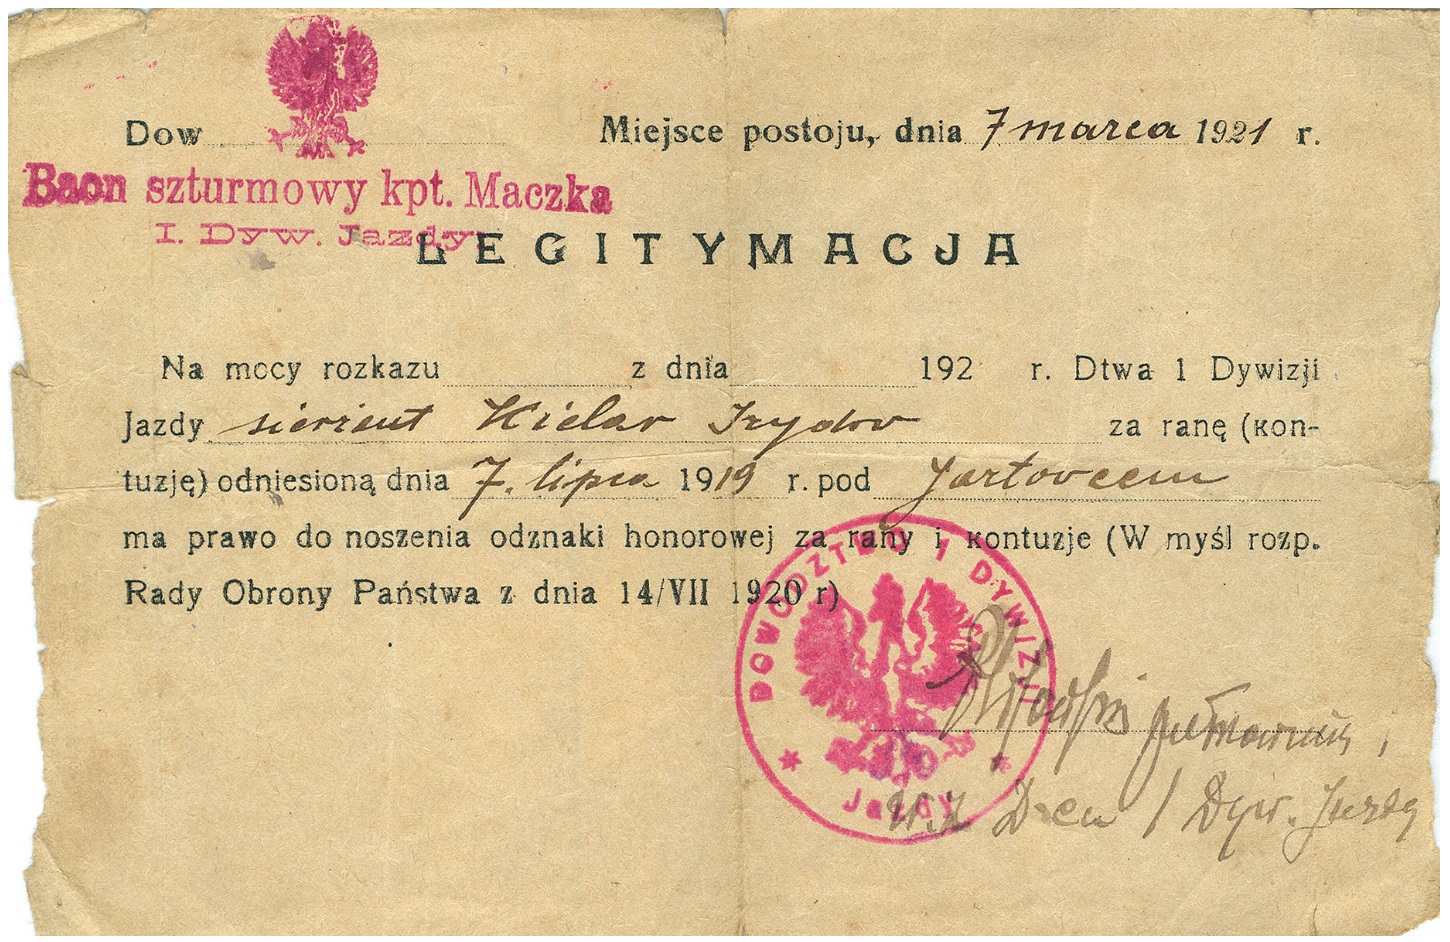 Dow
Miejsce postoju, dnia 7 marca 1921 r.
Baon szturmowy kpt. Maczka
I. Dyw. Jazdy
LEGITYMACJA
Na mocy rozkazu z dnia 192 r. Dtwa 1 Dywizji
Jazdy sierżent Kielar Izydor za ranę (kon-
tuzję) odniesioną dnia 7. lipca 1919 r. pod Jazłowcem
ma prawo do noszenia odznaki honorowej za rany i kontuzje (W myśl rozp.
Rady Obrony Państwa z dnia 14/VII 1920 r)
DOWODZTWO 1 DYWIZJI
Jazdy
pułkownik
W.Z. D-cu 1 Dyw. Jazdy